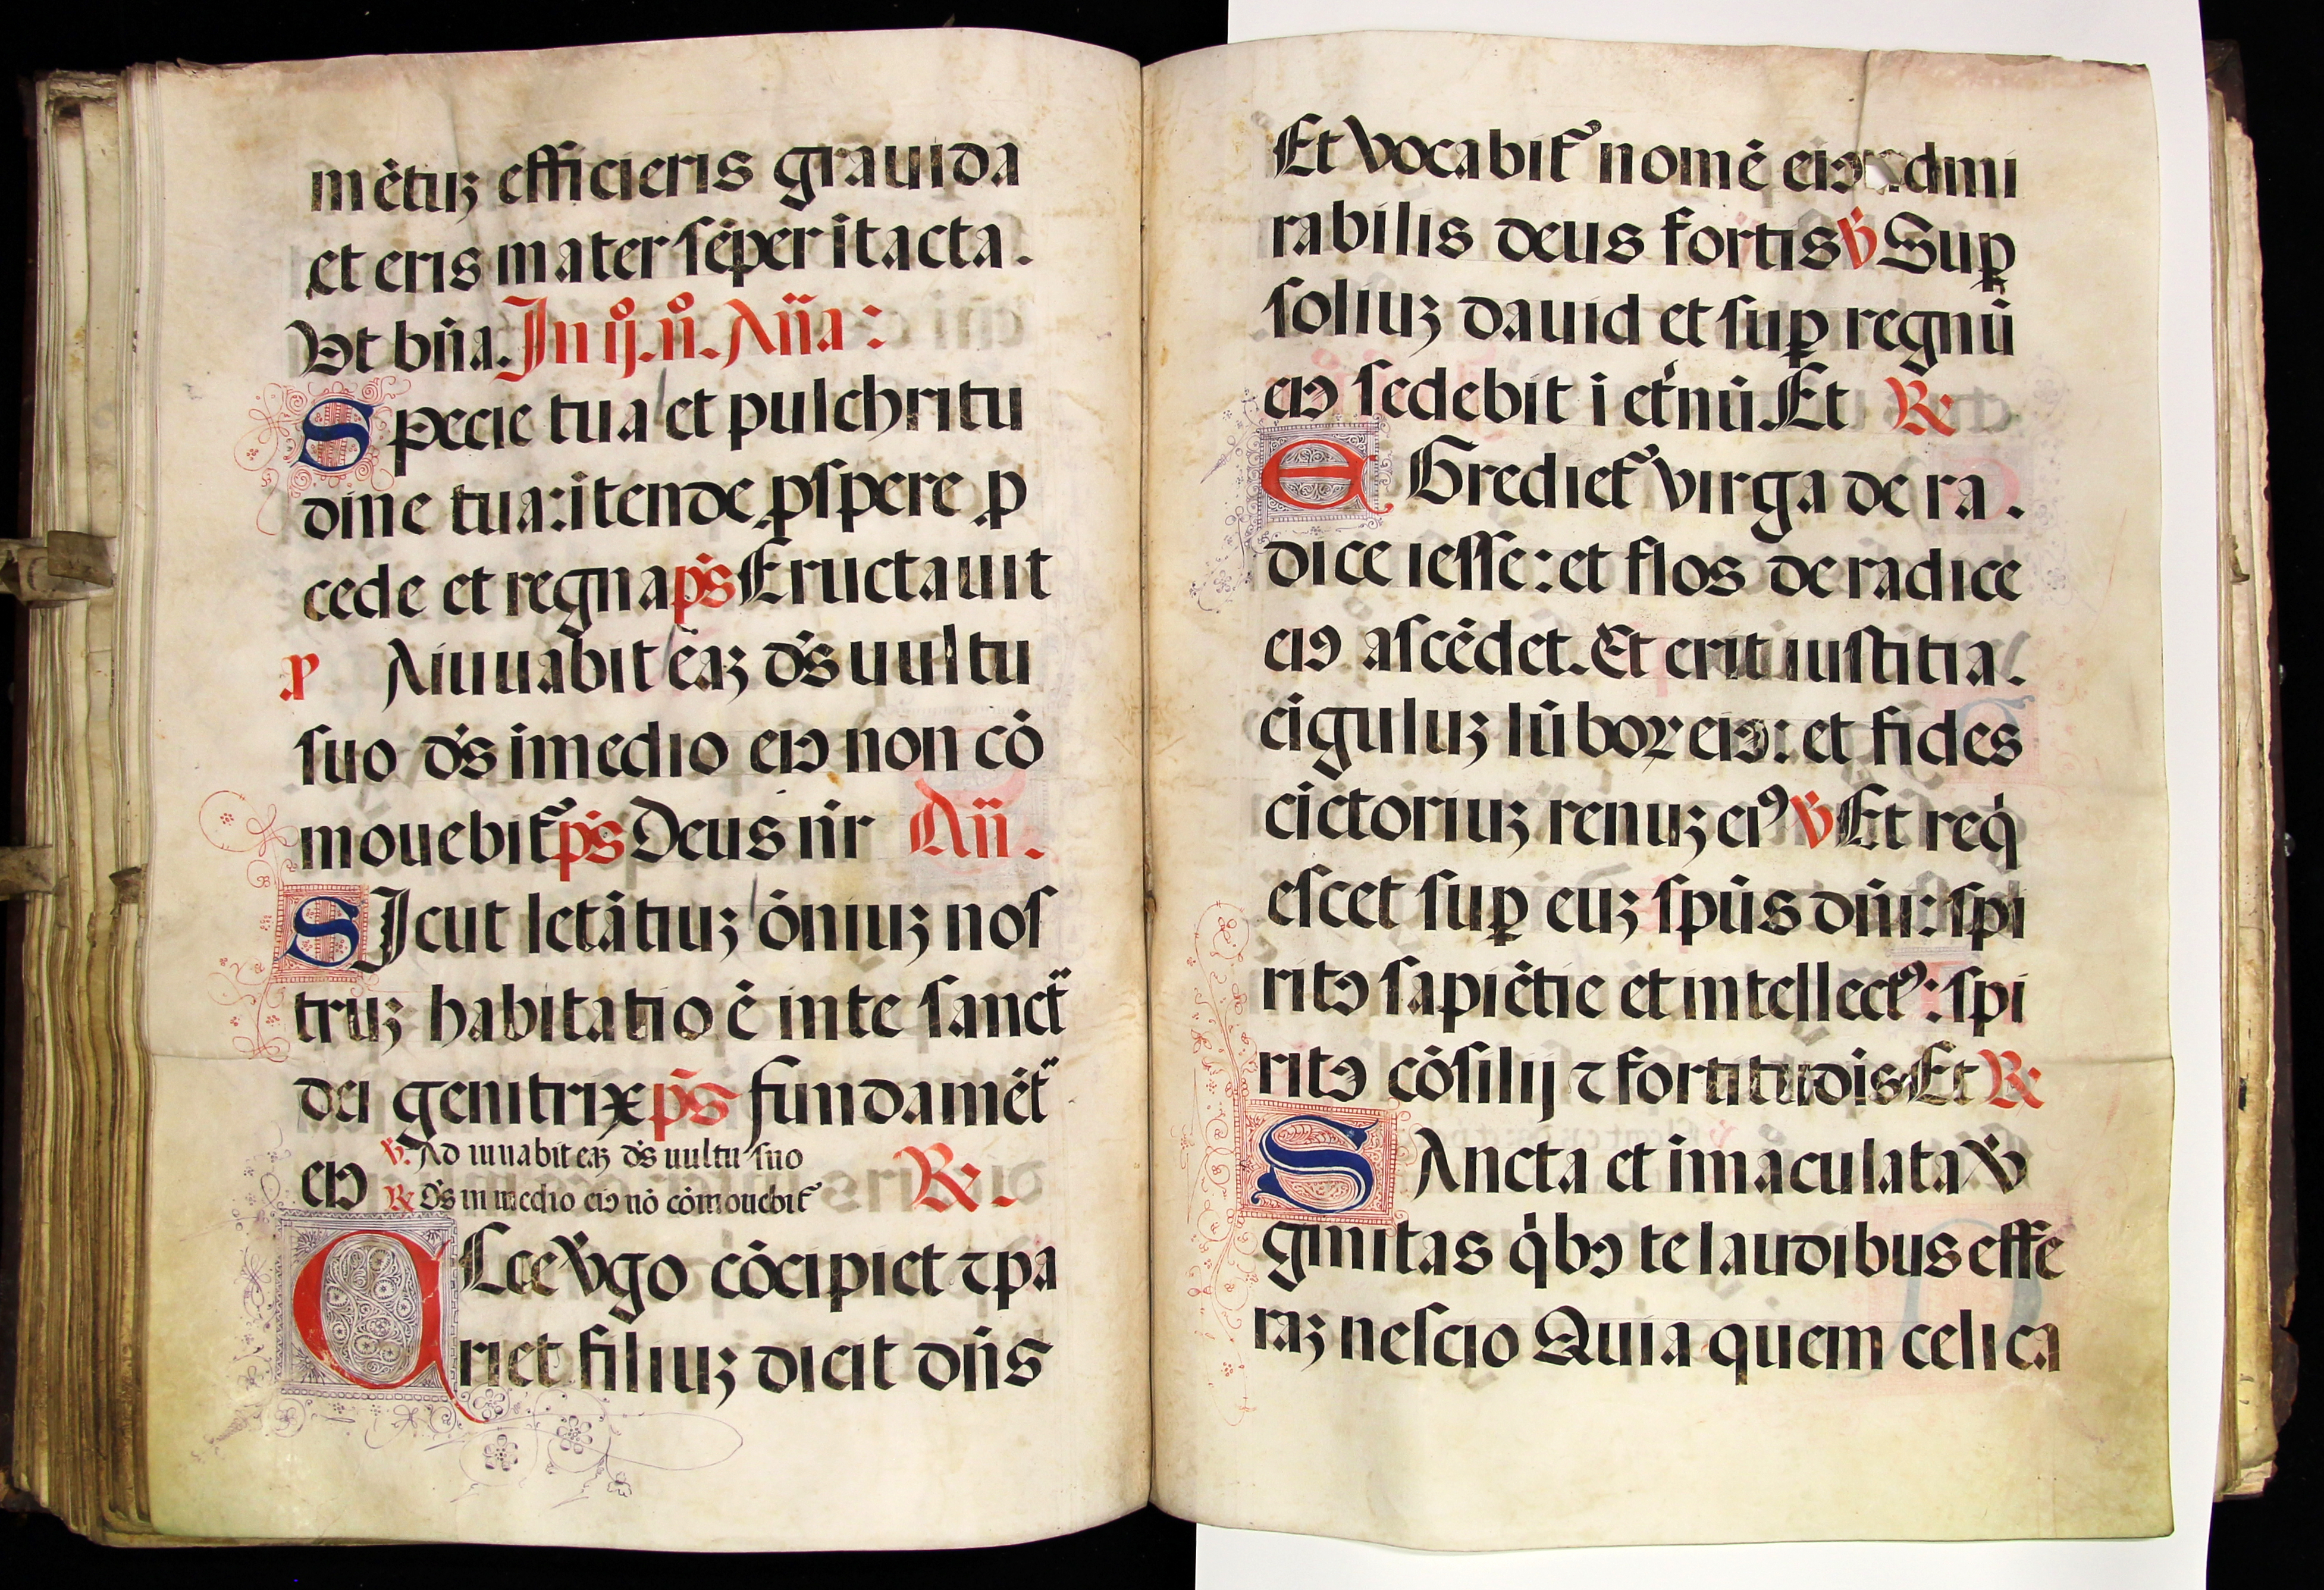 mētuꝫ efficieris grauida
et eris mater sēper ītacta.
Vt bn̄a. In ij. n̊. An̄a:
Specie tua et pulchritu
dine tua: ītende ꝓspere ꝓ
cede et regna p̄s Eructauit
P Aiuuabit eaꝫ ds̄ uultu
suo ds̄ imedio eiꝰ non cō
mouebit᷑ p̄s Deus nr̄ An̄.
SIcut letātiuꝫ ōniuꝫ nos
truꝫ habitatio ē in te sanct̄
dei genitrix p̄s fundamēt̄
eiꝰ ℣. Ad iuuabit eaꝫ ds̄ uultu suo
℟ ds̄ in medio eiꝰ nō cōmouebit᷑ ℟.
ECce v̄go cōcipiet ⁊ pa
riet filiuꝫ dicit dn̄s
Et vocabit᷑ nomē eiꝰ admi
rabilis deus fortis ℣ Suꝑ
soliuꝫ dauid et suꝑ regnū
eiꝰ sedebit i et̄nū. Et ℟
EGrediet᷑ virga de ra.
dice iesse: et flos de radice
eiꝰ ascēdet. Et erit iustitia.
cīguluꝫ lūboꝝ eiꝰ: et fides
cīctoriuꝫ renuꝫ eiꝰ ℣ Et req̇
escet suꝑ euꝫ spūs dn̄i: spi
ritꝰ sapiētie et intellectꝰ: spi
ritꝰ cōsilij ⁊ fortitudīs Et ℟
SAncta et īmaculata v̄
ginitas q̇bꝰ te laudibus effe
raꝫ nescio Quia quem celi ca